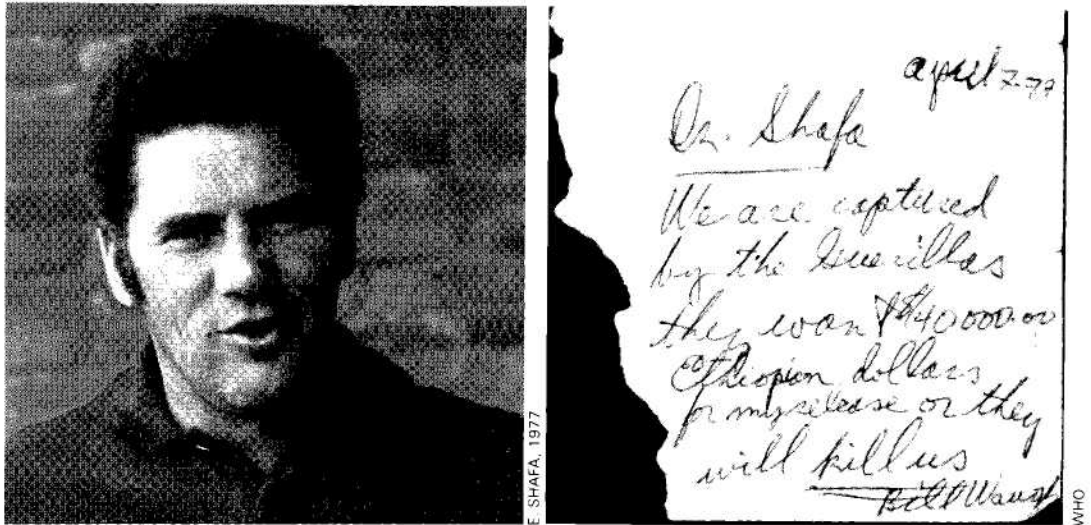 E. SHAFA, 1977
april 7-77
Dr. Shafa
We are captured
by the Guerillas
they wan $40000.00
Ethiopian dollars
for my release or they
will kill us
Bill Waugh
WHO